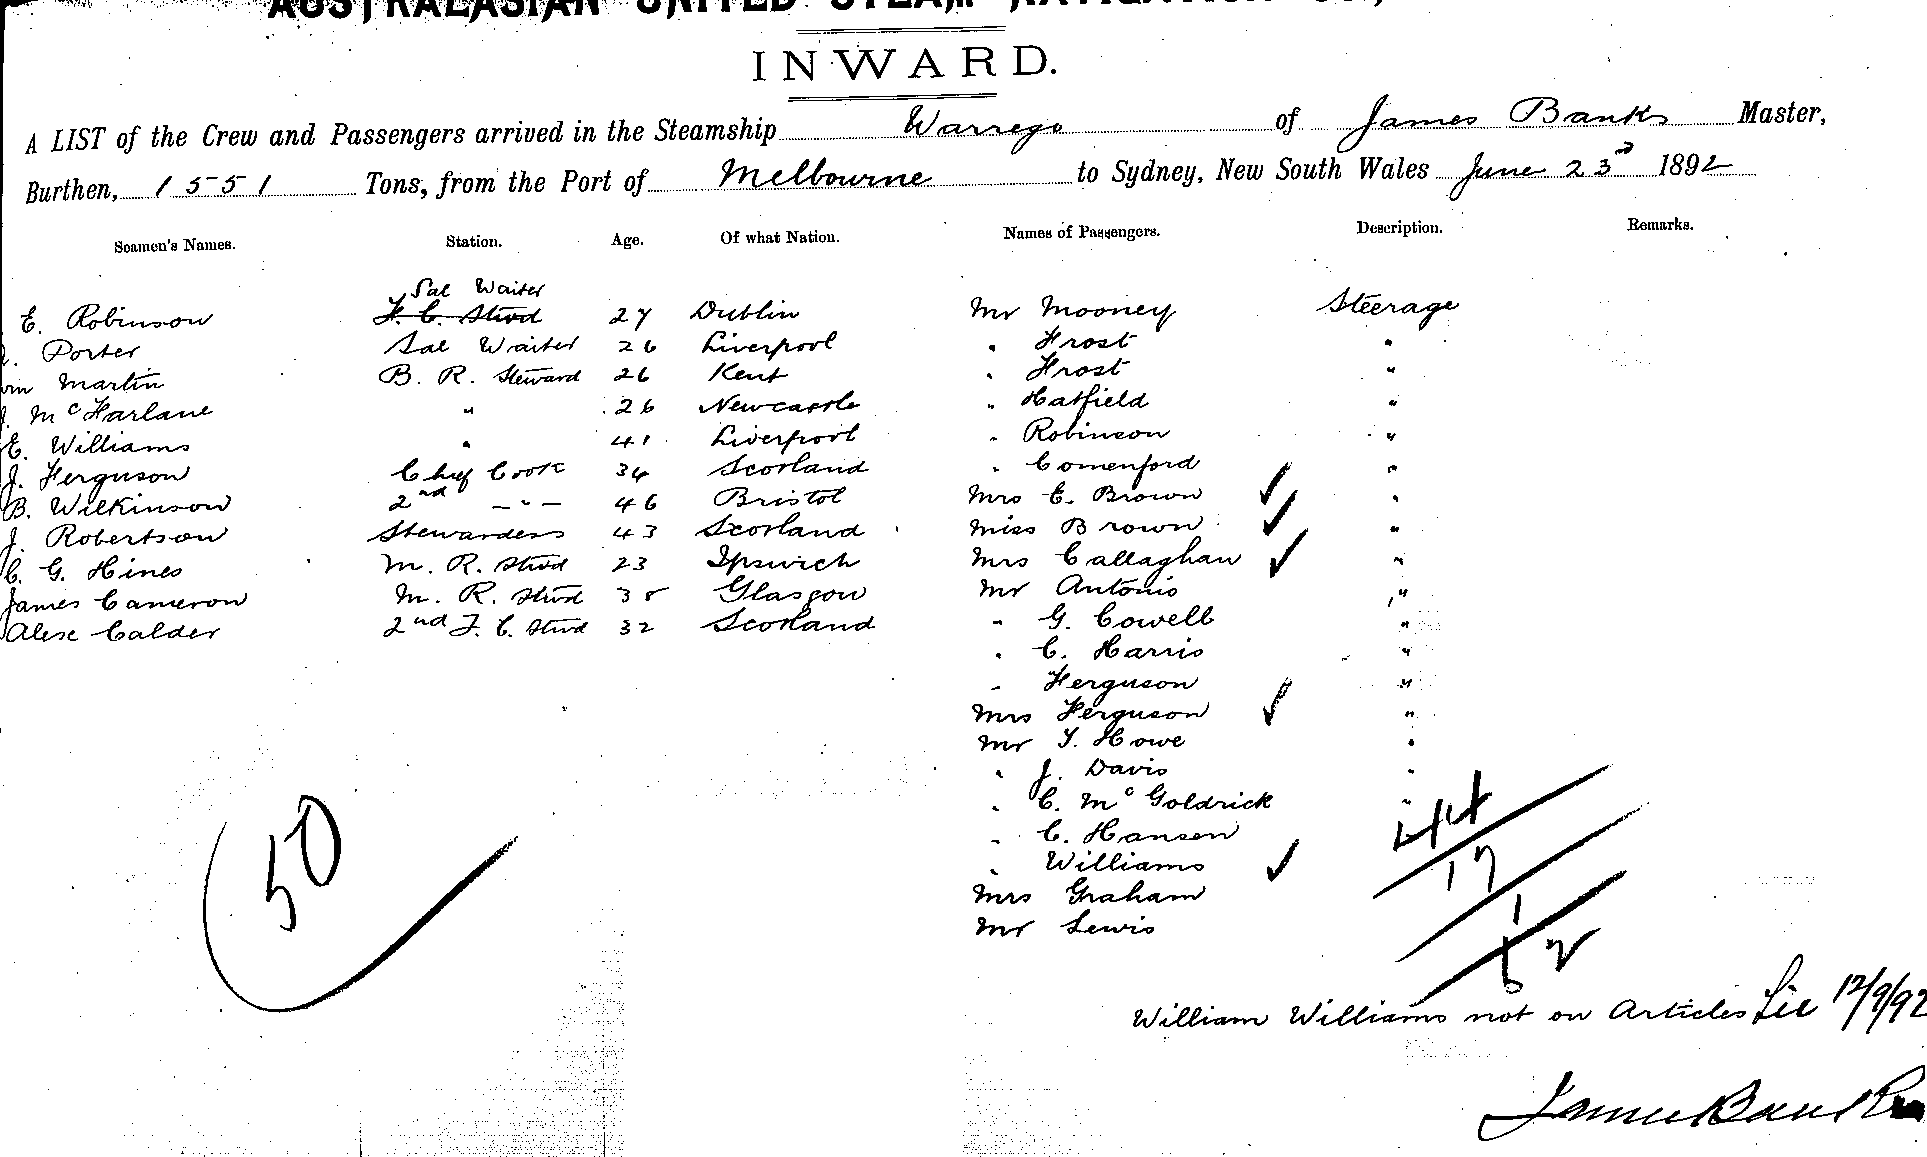 AUSTRALASIAN UNITED STEAM NAVIGATION
INWARD.
A LIST of the Crew and Passengers arrived in the Steamship Warrego of James Banks Master,
Burthen, 1551 Tons, from the Port of Melbourne to Sydney, New South Wales June 23d 1892
Seamen's Names. Station. Age. Of what Nation. Names of Passengers. Description. Remarks.
Sal Waiter
E. Robinson F. C. Stwd 27 Dublin Mr Mooney Steerage
Porter Sal Waiter 26 Liverpool " Frost "
Martin B. R. Steward 26 Kent " Frost "
McFarlane " 26 Newcastle " Hatfield "
E. Williams " 41 Liverpool " Robinson "
J. Ferguson Chief Cook 34 Scotland " Comenford "
B. Wilkinson 2nd - " - 46 Bristol Mrs E. Brown ✓ "
J. Robertson Stewardess 43 Scotland Miss Brown ✓ "
C. G. Hines M. R. Stwd 23 Ipswich Mrs Callaghan ✓ "
James Cameron M. R. Stwd 38 Glasgow Mr Antonio "
Alex Calder 2nd F. C. Stwd 32 Scotland " G. Cowell "
" C. Harris "
" Ferguson "
Mrs Ferguson ✓ "
Mr Y. Howe "
" J. Davis "
" C. McGoldrick "
" C. Hansen
" Williams ✓
Mrs Graham
Mr Lewis
50
44
17
1
62
William Williams not on Articles 12/9/92
James Banks